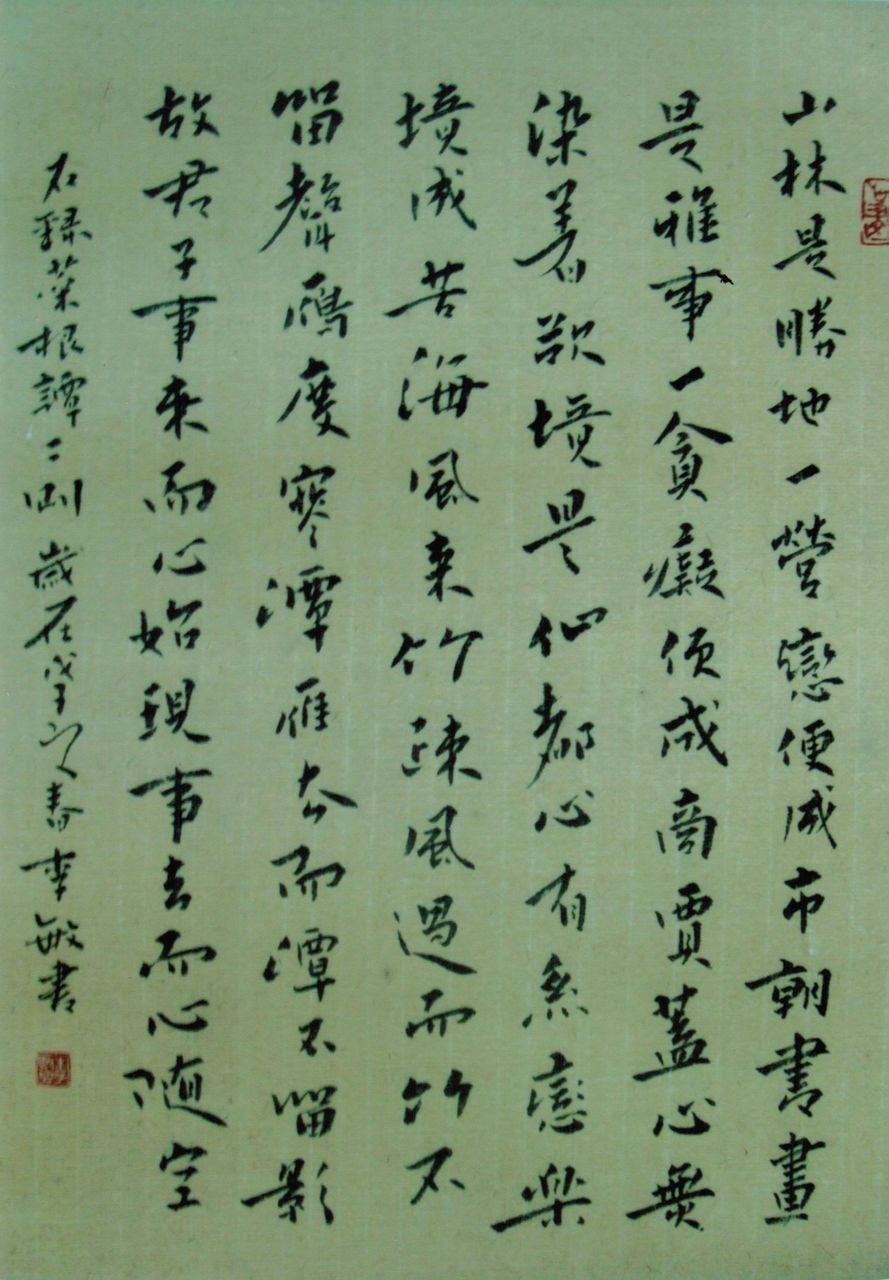 山林是勝地一營戀便成市朝書畫
是雅事一貪癡便成商賈蓋心無
染着欲境是仙都心有系戀樂
境成苦海風来竹疎風過而竹不
留聲鴈度寒潭雁去而潭不留影
故君子事来而心始現事去而心随空
右録菜根譚二則歲在戊子春李敏書